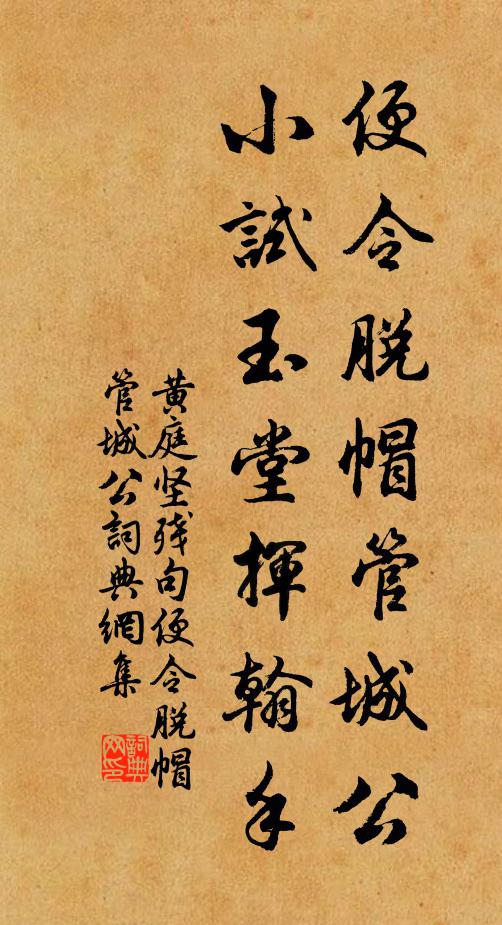 便令脱帽管城公
小試玉堂揮翰手
黄庭坚残句便令脱帽
管城公詞典網集
詞典
网印